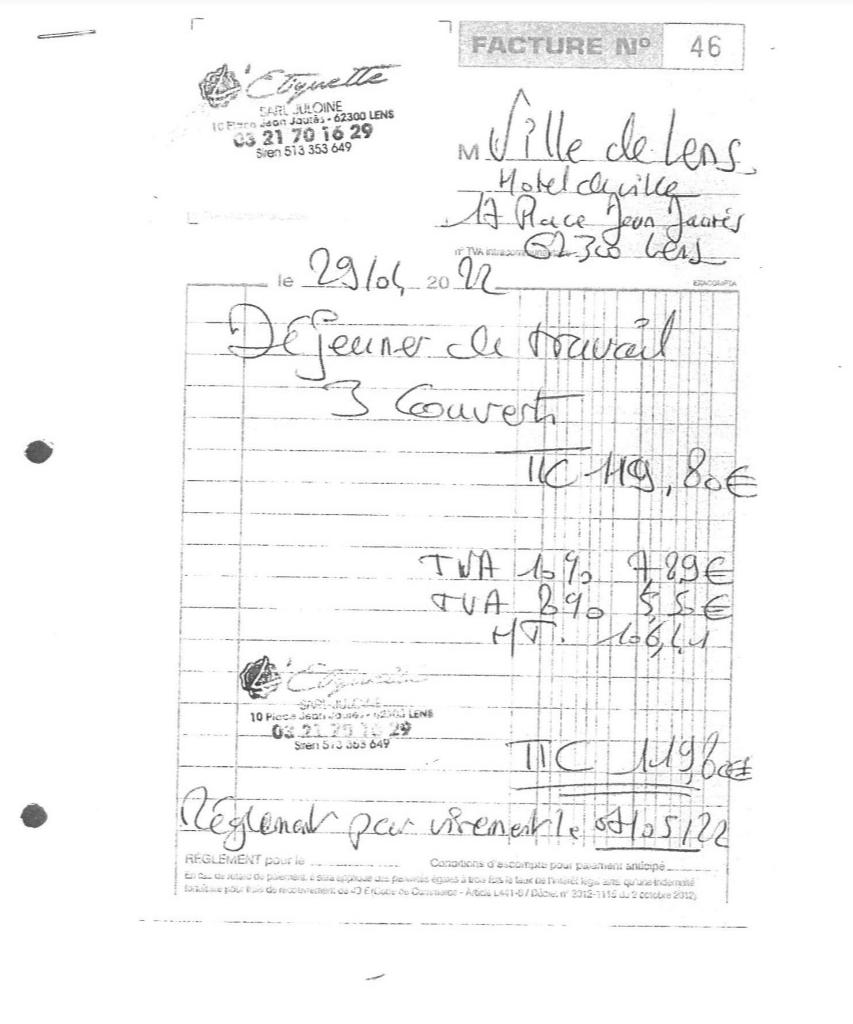 FACTURE N° 46
L'Etiquette
SARL JULOINE
10 Place Jean Jaurès - 62300 LENS
03 21 70 16 29
Siren 513 353 649
M Ville de Lens
Hotel de ville
17 Place Jean Jaurès
n° TVA intracommunautaire 62300 Lens
le 29/04 2022
EXACOMPTA
Déjeuner de travail
3 Couverts
TTC 119,80€
TVA 10% 7,89€
TVA 20% 5,50€
HT. 106,41
L'Etiquette
SARL JULOINE
10 Place Jean Jaurès - 62300 LENS
03 21 70 16 29
Siren 513 353 649
TTC 119,80€
Réglement par virement le /05/22
RÈGLEMENT pour le Conditions d'escompte pour paiement anticipé
En cas de retard de paiement, il sera appliqué des pénalités égales à trois fois le taux de l'intérêt légal ainsi qu'une indemnité
forfaitaire pour frais de recouvrement de 40 € (Code de Commerce - Article L441-6 / Décret n° 2012-1115 du 2 octobre 2012)